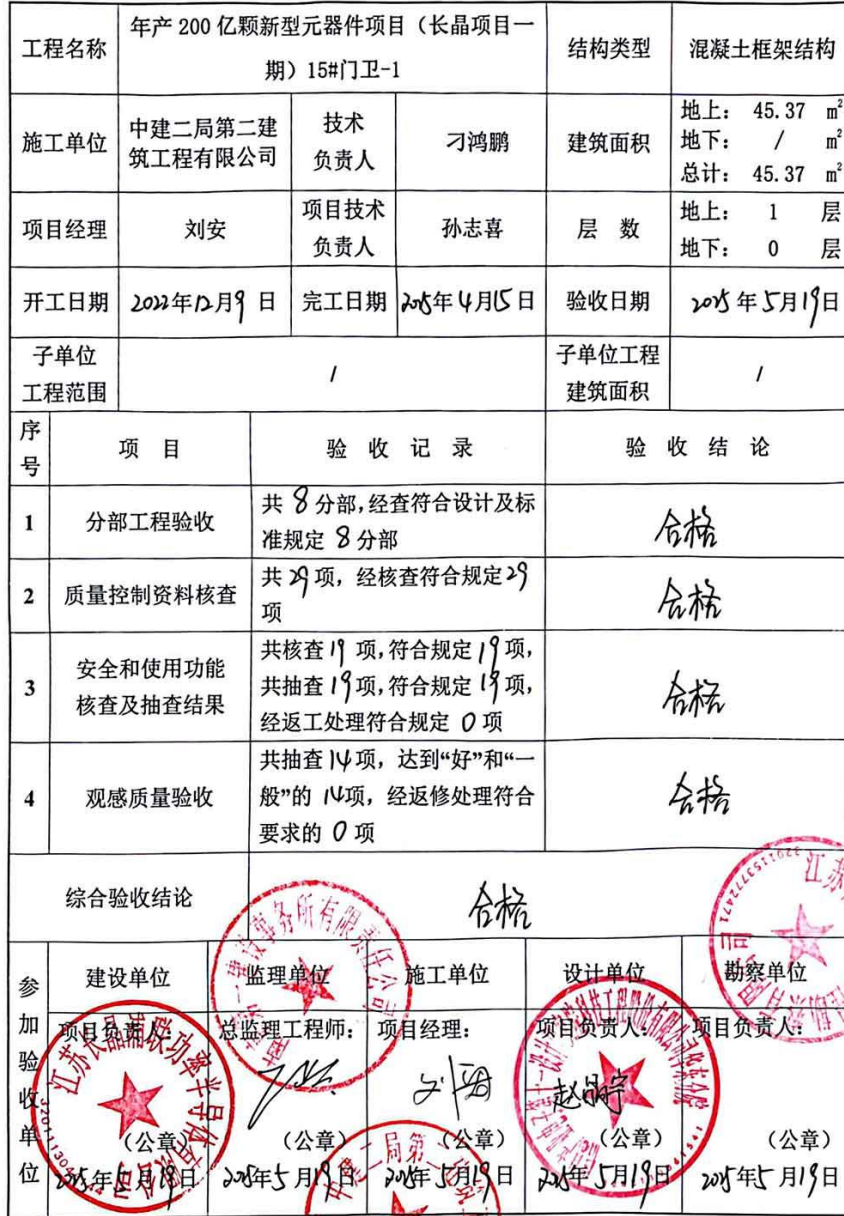 工程名称
年产 200 亿颗新型元器件项目（长晶项目一
期）15#门卫-1
结构类型
混凝土框架结构
施工单位
中建二局第二建
筑工程有限公司
技术
负责人
刁鸿鹏
建筑面积
地上： 45.37 m²
地下： / m²
总计： 45.37 m²
项目经理
刘安
项目技术
负责人
孙志喜
层 数
地上： 1 层
地下： 0 层
开工日期
2022年12月9日
完工日期
2025年4月15日
验收日期
2025年5月19日
子单位
工程范围
/
子单位工程
建筑面积
/
序
号
项 目
验 收 记 录
验 收 结 论
1
分部工程验收
共 8 分部,经查符合设计及标
准规定 8 分部
合格
2
质量控制资料核查
共29项，经核查符合规定29
项
合格
3
安全和使用功能
核查及抽查结果
共核查19项,符合规定19项,
共抽查19项,符合规定19项,
经返工处理符合规定 0 项
合格
4
观感质量验收
共抽查14项，达到“好”和“一
般”的 14项，经返修处理符合
要求的 0 项
合格
综合验收结论
合格
参
加
验
收
单
位
建设单位
监理单位
施工单位
设计单位
勘察单位
项目负责人：
总监理工程师：
项目经理：
项目负责人：
项目负责人：
（公章）
（公章）
（公章）
（公章）
（公章）
2025年5月19日
2025年5月19日
2025年5月19日
2025年5月19日
2025年5月19日
建设事务所有限责任公司
中建二局第二
3201153772471